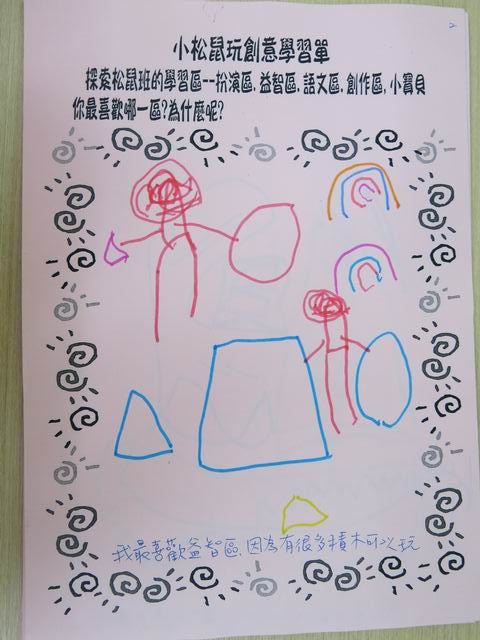 小松鼠玩創意學習單
探索松鼠班的學習區--扮演區,益智區,語文區,創作區,小寶貝
你最喜歡哪一區?為什麼呢?
我最喜歡益智區,因為有很多積木可以玩